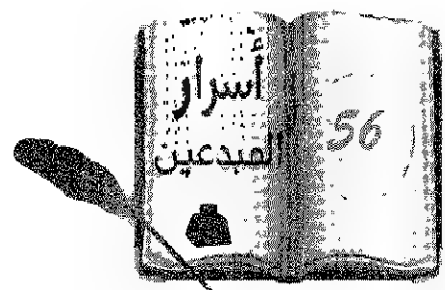 أسرار
المبدعين
56